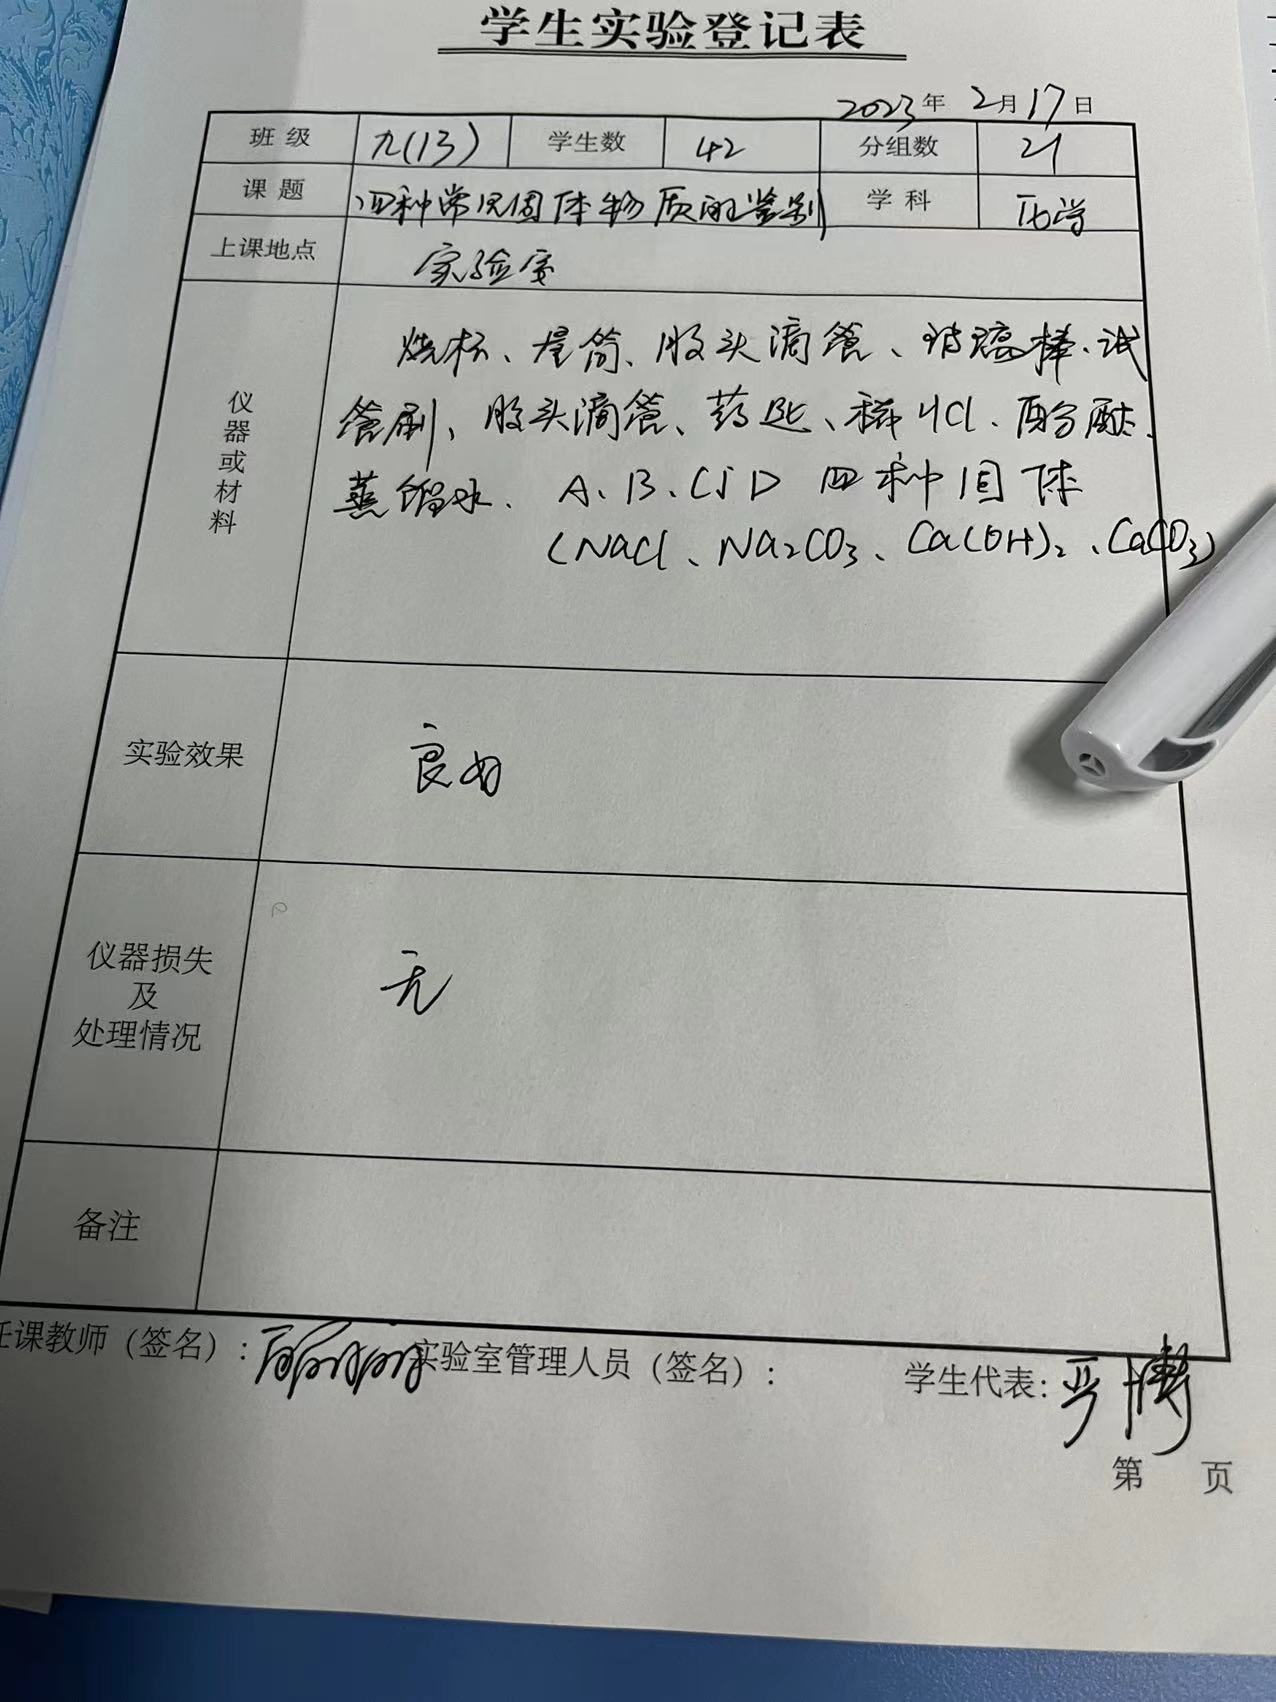 学生实验登记表
2023年 2月17日
班 级 九(13) 学生数 42 分组数 21
课 题 四种常见固体物质的鉴别 学 科 化学
上课地点 实验室
仪器或材料
烧杯、量筒、胶头滴管、玻璃棒、试
管刷、胶头滴管、药匙、稀HCl、酚酞、
蒸馏水、A、B、C、D 四种固体
(NaCl、Na₂CO₃、Ca(OH)₂、CaCO₃)
实验效果 良好
仪器损失
及
处理情况
无
备注
任课教师（签名）: 实验室管理人员（签名）: 学生代表:
第 页